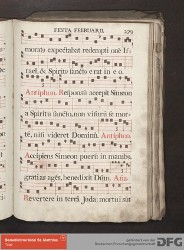 FESTA FEBRUARII. 279
morato expectabat redempti onē Is-
rael, & Spiritu sancto erat in e o.
Antiphon. Responsū accepit Simeon
a Spiritu sancto, non visurū se mor-
tē, nisi videret Dominū. Antiphon.
Accipiens Simeon puerū in manib9,
gratias agēs, benedixit Dōm. Aña.
Revertere in terrā Juda: mortui sūt
DFG